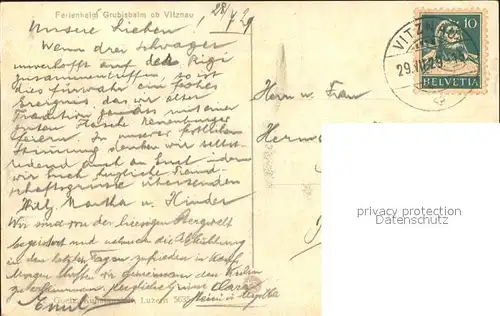 Ferienheim Grubisbalm ob Vitznau
28/V 29
Unsere Lieben!
Wenn drei Schwager
unverhofft auf dem Rigi
zusammentreffen, so ist
dies fürwahr ein frohes
Ereignis, das wir alter
Tradition gemäss mit einer
guten Flasche Neuenburger
feiern. In unserer fröhlichen
Stimmung denken wir selbst-
redend auch an Euch indem
wir Euch herzliche Freund-
schaftsgrüsse übersenden
Willy Martha u. Kinder
Wir sind von der hiesigen Bergwelt
begeistert und nehmen die Abkühlung
in den letzten Tagen zufrieden in Kauf.
Morgen hoffen wir gemeinsam den Kulm
zu erklimmen. Herzliche Grüsse Clara
Emil Heini u. Martha
Luzern 5635
VITZNAU
29.VII.29
10
HELVETIA
Herrn u. Frau
privacy protection
Datenschutz